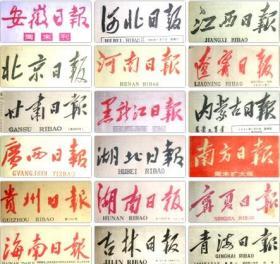 安徽日報
周末刊
河北日報
HEBEI RIBAO
江西日報
JIANGXI RIBAO
北京日報
河南日報
HENAN RIBAO
遼寧日報
LIAONING RIBAO
甘肅日報
GANSU RIBAO
黑龍江日報
内蒙古日報
廣西日報
GVANGJSIH YIZBAU
湖北日報
HUBEI RIBAO
南方日報
周末扩大版
貴州日報
GUIZHOU RIBAO
湖南日報
HUNAN RIBAO
寧夏日報
NINGXIA RIBAO
海南日報
吉林日報
JILIN RIBAO
青海日報
QINGHAI RIBAO